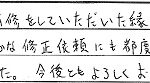 修をしていただいた縁
かな修正依頼にも都度
た。今後ともよろしくお